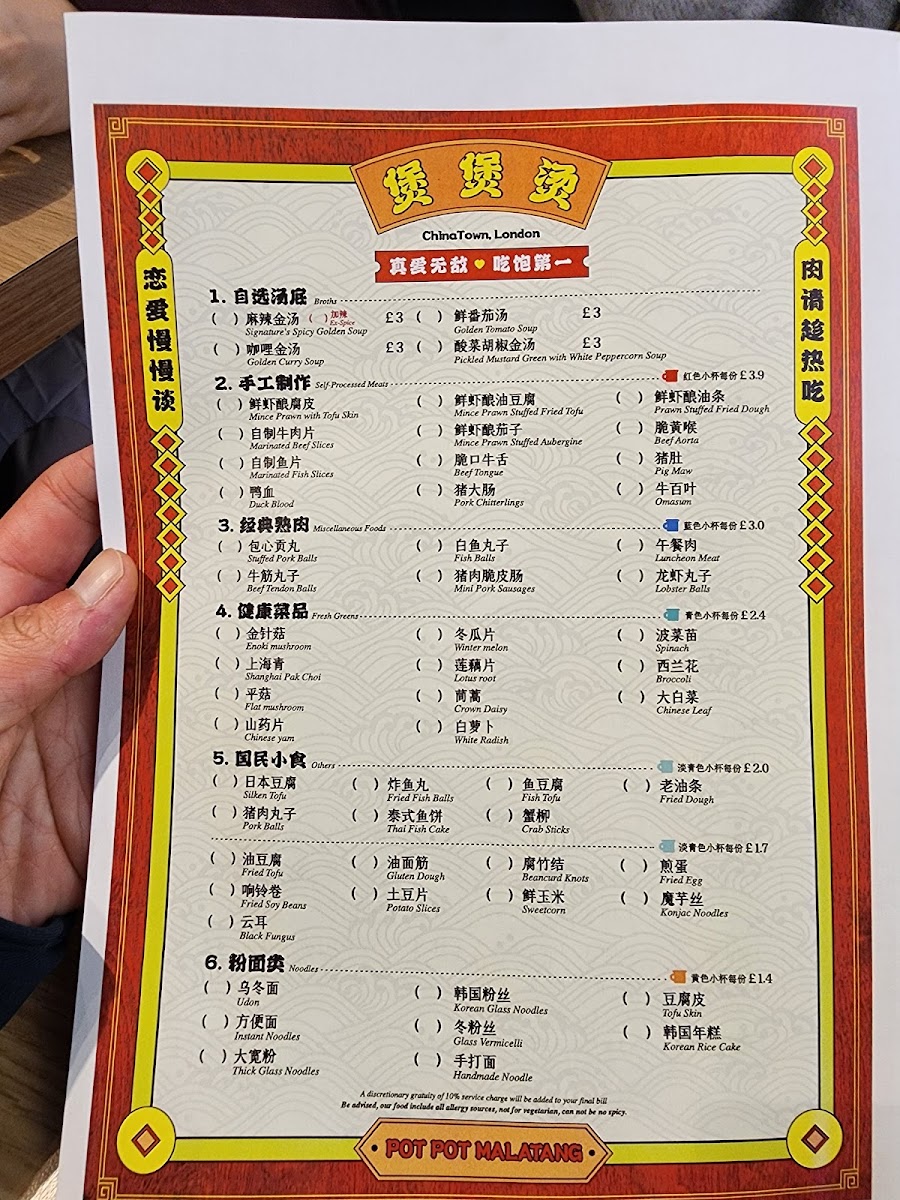 煲煲烫
ChinaTown, London
真爱无敌 吃饱第一
恋爱慢慢谈
肉请趁热吃
1. 自选汤底 Broths
( ) 麻辣金汤 ( ) 加辣 £3 ( ) 鲜番茄汤 £3
Signature's Spicy Golden Soup Ex-Spice Golden Tomato Soup
( ) 咖喱金汤 £3 ( ) 酸菜胡椒金汤 £3
Golden Curry Soup Pickled Mustard Green with White Peppercorn Soup
2. 手工制作 Self-Processed Meats 红色小杯每份 £3.9
( ) 鲜虾酿腐皮 ( ) 鲜虾酿油豆腐 ( ) 鲜虾酿油条
Mince Prawn with Tofu Skin Mince Prawn Stuffed Fried Tofu Prawn Stuffed Fried Dough
( ) 自制牛肉片 ( ) 鲜虾酿茄子 ( ) 脆黄喉
Marinated Beef Slices Mince Prawn Stuffed Aubergine Beef Aorta
( ) 自制鱼片 ( ) 脆口牛舌 ( ) 猪肚
Marinated Fish Slices Beef Tongue Pig Maw
( ) 鸭血 ( ) 猪大肠 ( ) 牛百叶
Duck Blood Pork Chitterlings Omasum
3. 经典熟肉 Miscellaneous Foods 蓝色小杯每份 £3.0
( ) 包心贡丸 ( ) 白鱼丸子 ( ) 午餐肉
Stuffed Pork Balls Fish Balls Luncheon Meat
( ) 牛筋丸子 ( ) 猪肉脆皮肠 ( ) 龙虾丸子
Beef Tendon Balls Mini Pork Sausages Lobster Balls
4. 健康菜品 Fresh Greens 青色小杯每份 £2.4
( ) 金针菇 ( ) 冬瓜片 ( ) 波菜苗
Enoki mushroom Winter melon Spinach
( ) 上海青 ( ) 莲藕片 ( ) 西兰花
Shanghai Pak Choi Lotus root Broccoli
( ) 平菇 ( ) 茼蒿 ( ) 大白菜
Flat mushroom Crown Daisy Chinese Leaf
( ) 山药片 ( ) 白萝卜
Chinese yam White Radish
5. 国民小食 Others 淡青色小杯每份 £2.0
( ) 日本豆腐 ( ) 炸鱼丸 ( ) 鱼豆腐 ( ) 老油条
Silken Tofu Fried Fish Balls Fish Tofu Fried Dough
( ) 猪肉丸子 ( ) 泰式鱼饼 ( ) 蟹柳
Pork Balls Thai Fish Cake Crab Sticks
淡青色小杯每份 £1.7
( ) 油豆腐 ( ) 油面筋 ( ) 腐竹结 ( ) 煎蛋
Fried Tofu Gluten Dough Beancurd Knots Fried Egg
( ) 响铃卷 ( ) 土豆片 ( ) 鲜玉米 ( ) 魔芋丝
Fried Soy Beans Potato Slices Sweetcorn Konjac Noodles
( ) 云耳
Black Fungus
6. 粉面类 Noodles 黄色小杯每份 £1.4
( ) 乌冬面 ( ) 韩国粉丝 ( ) 豆腐皮
Udon Korean Glass Noodles Tofu Skin
( ) 方便面 ( ) 冬粉丝 ( ) 韩国年糕
Instant Noodles Glass Vermicelli Korean Rice Cake
( ) 大宽粉 ( ) 手打面
Thick Glass Noodles Handmade Noodle
A discretionary gratuity of 10% service charge will be added to your final bill
Be advised, our food include all allergy sources, not for vegetarian, can not be no spicy.
POT POT MALATANG